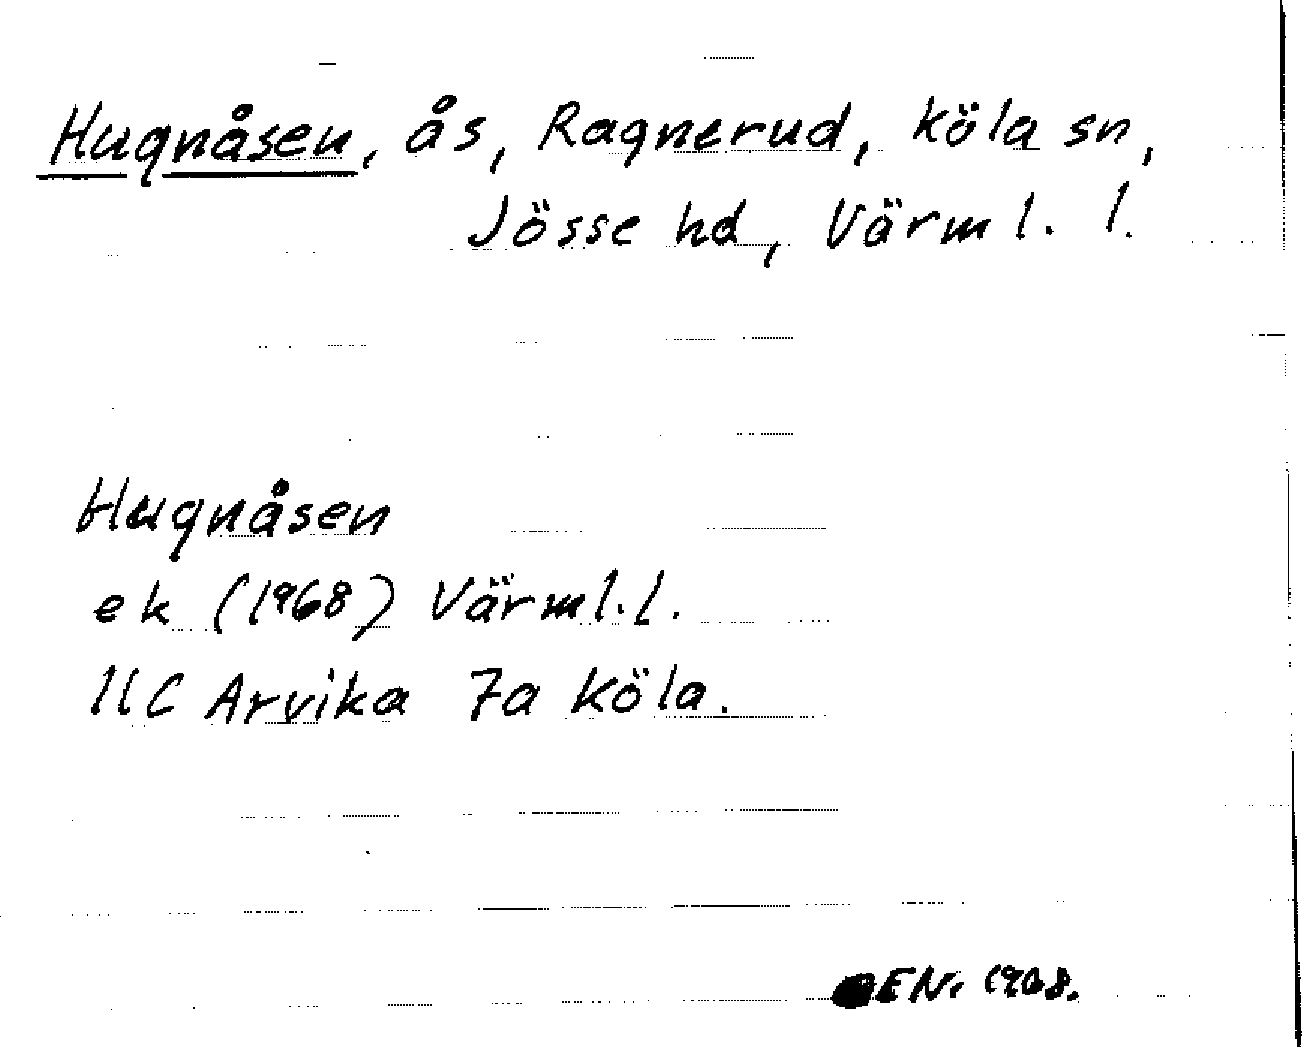 Hugnåsen, ås, Ragnerud, Köla sn,
Jösse hd, Värml. l.
Hugnåsen
ek (1968) Värml. l.
11C Arvika 7a Köla.
EN. 1968.